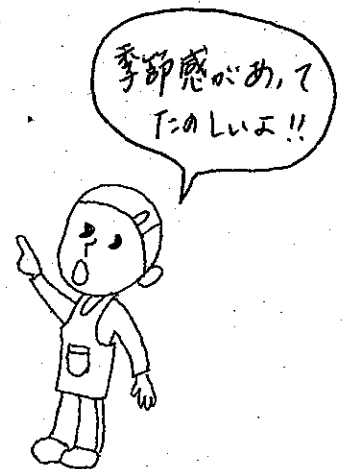 季節感があって
たのしいよ!!